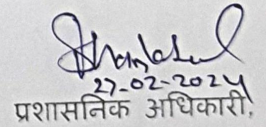 27-02-2024
प्रशासनिक अधिकारी,